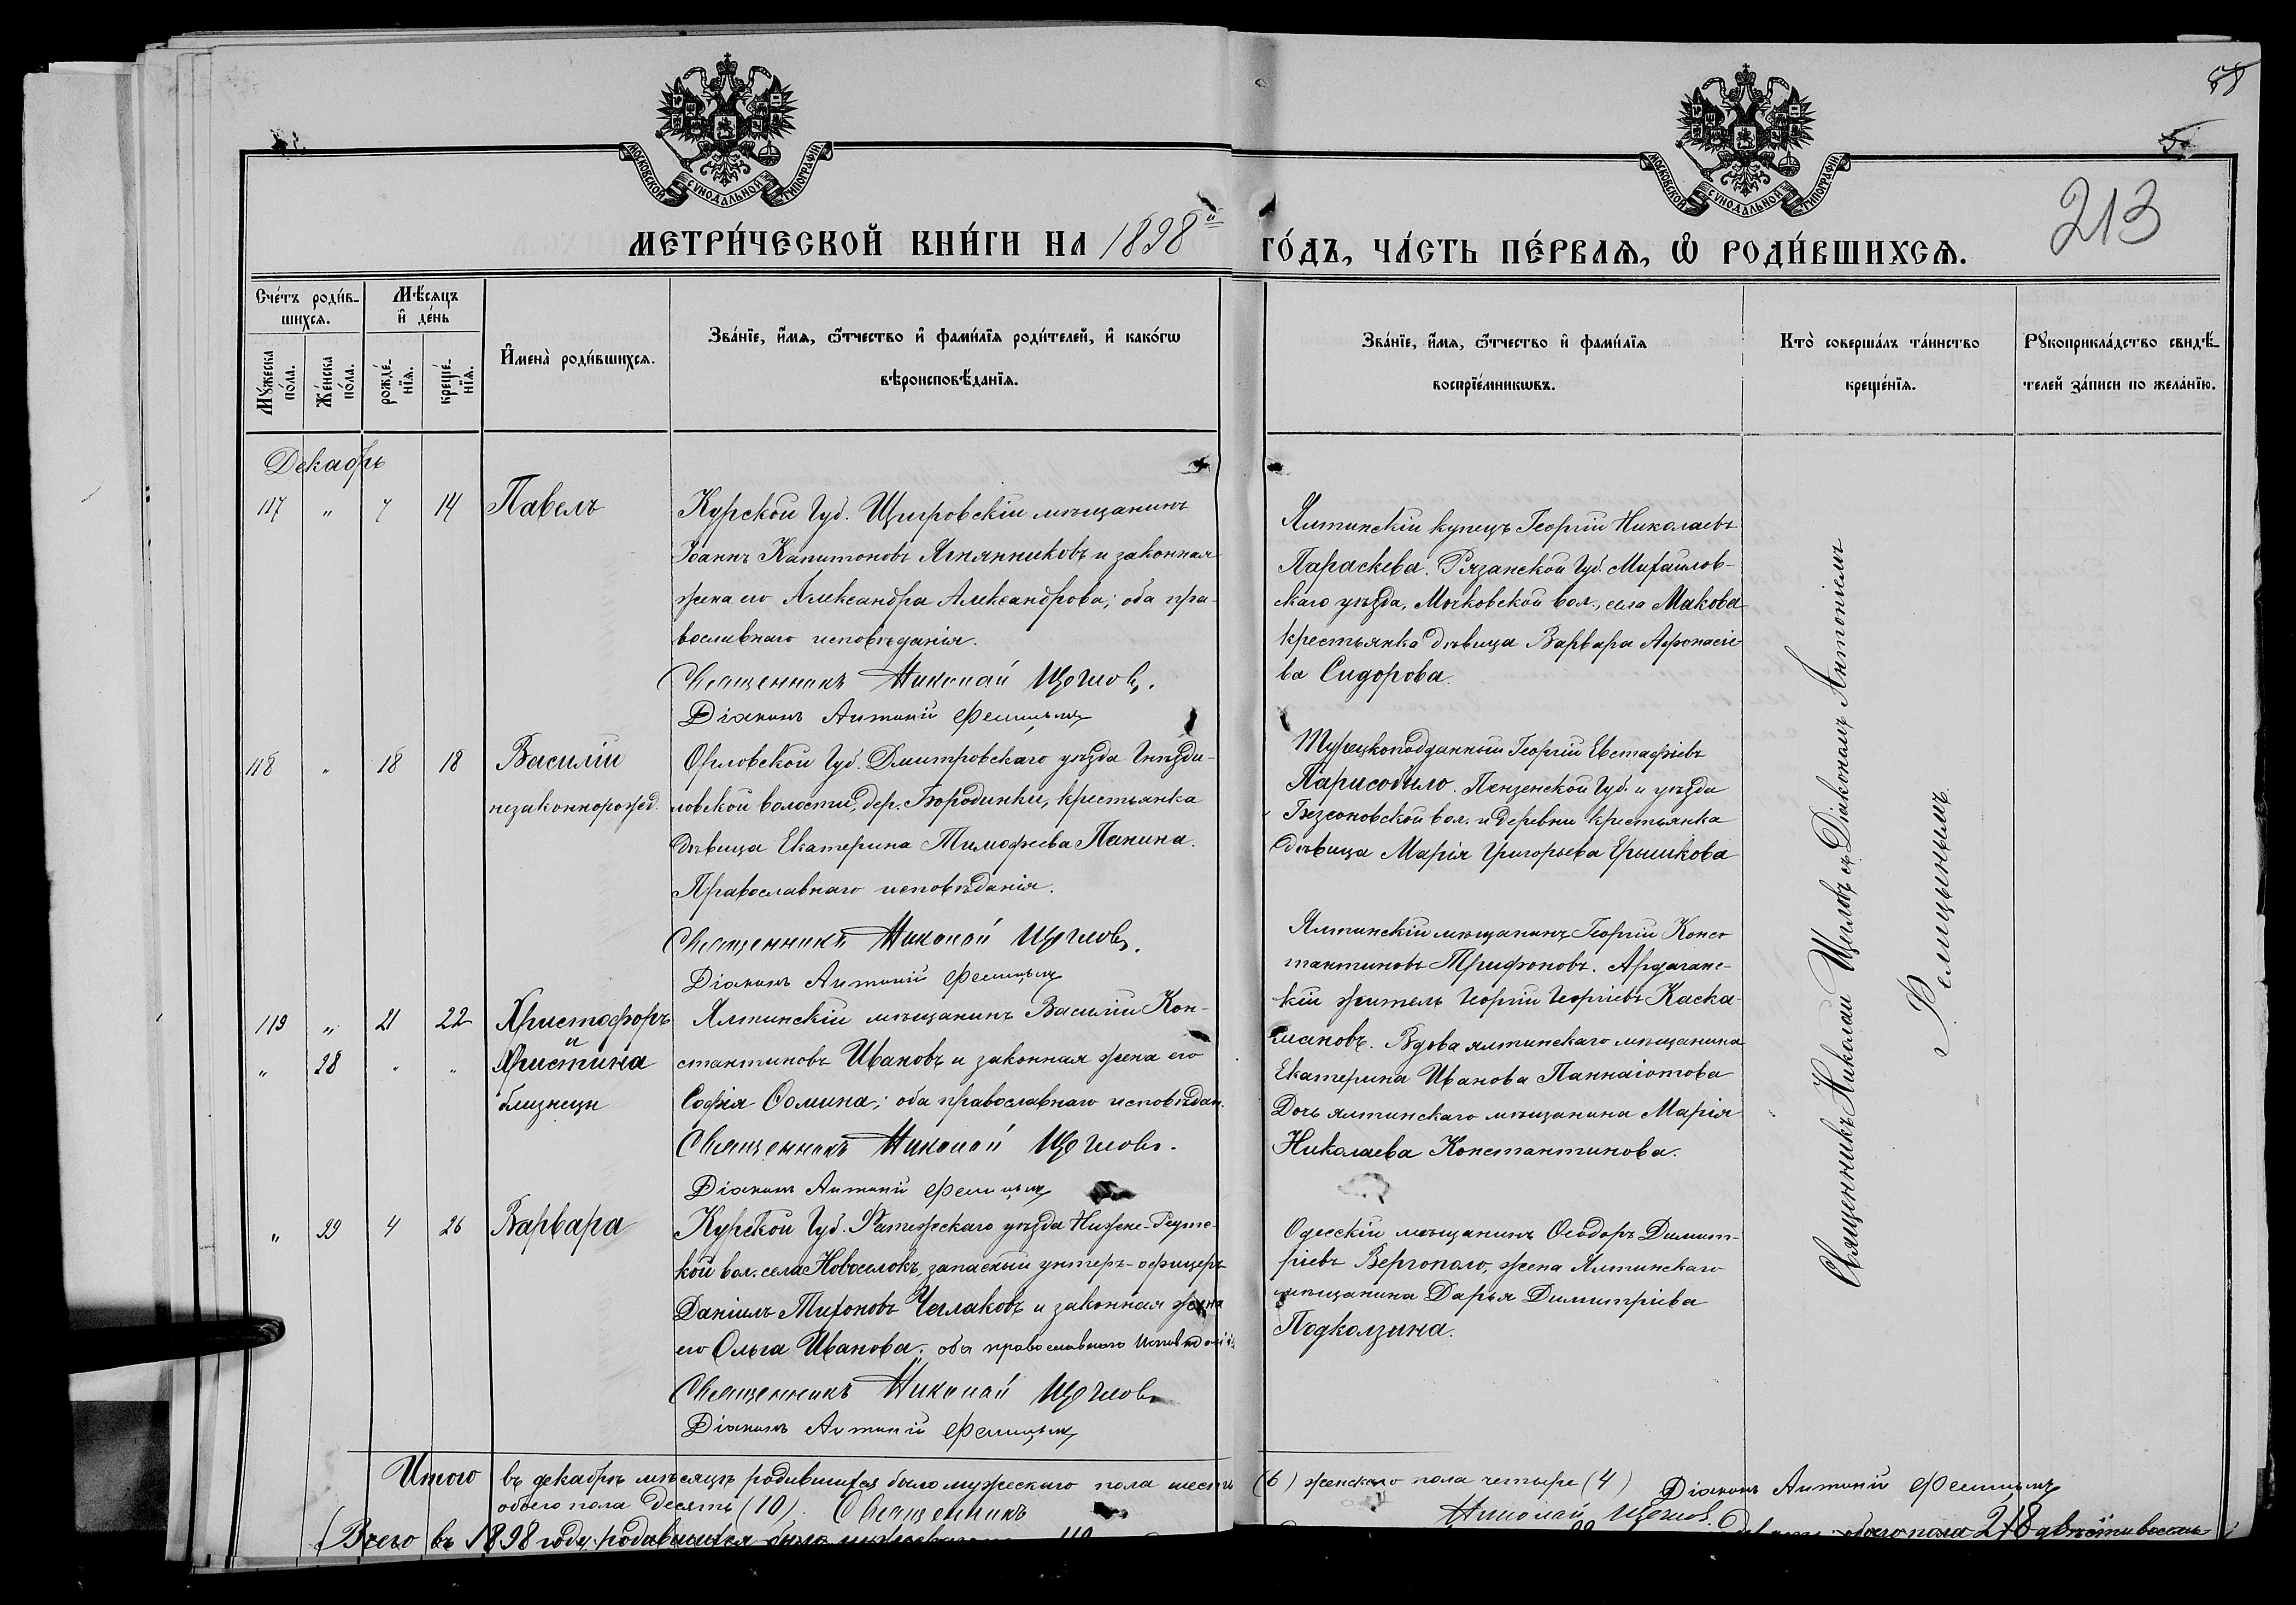 88
213
МОСКОВСКОЙ СѴНОДАЛЬНОЙ ТИПОГРАФІИ
МОСКОВСКОЙ СѴНОДАЛЬНОЙ ТИПОГРАФІИ
МЕТРИ́ЧЕСКОЙ КНИ́ГИ НА 1898й ГО́ДЪ, ЧА́СТЬ ПЕ́РВАѦ, Ѽ РОДИ́ВШИХСѦ.
Сче́тъ роди́в-
шихсѧ.
Мѣ́сѧцъ
и҆ де́нь
Мꙋ́жеска
по́ла.
Же́нска
по́ла.
рожде́-
нїѧ.
креще́-
нїѧ.
И҆мена̀ роди́вшихсѧ.
Зва́нїе, и҆́мѧ, ѻ҆́тчество и҆ фами́лїѧ роди́телей, и҆ како́гѡ
вѣроисповѣ́данїѧ.
Зва́нїе, и҆́мѧ, ѻ҆́тчество и҆ фами́лїѧ
воспрїе́мникѡвъ.
Кто̀ соверша́лъ та́инство
креще́нїѧ.
Рꙋкоприкла́дство свидѣ́-
телей за́писи по жела́нїю.
Декабрь
117 " 7 14 Павелъ
Курской Губ. Щигровскій мѣщанинъ
Іоаннъ Капитоновъ Ягнянниковъ и законная
жена его Александра Александрова; оба пра-
вославнаго исповѣданія.
Священникъ Николай Щегловъ.
Діаконъ Антоній Фелицынъ
Ялтинскій купецъ Георгій Николаевъ
Параскева. Рязанской Губ. Михайлов-
скаго уѣзда, Мочковской вол., села Макова
крестьянка дѣвица Варвара Афонасіе-
ва Сидорова.
118 " 18 18 Василій
незаконнорожд.
Орловской Губ. Дмитровскаго уѣзда Гнѣзди-
ловской волости, дер. Бородинки, крестьянка
дѣвица Екатерина Тимофеева Панина.
Православнаго исповѣданія.
Священникъ Николай Щегловъ.
Діаконъ Антоній Фелицынъ
Турецкоподданный Георгій Евстафіевъ
Парисовыло. Пензенской Губ. и уѣзда
Безсоновской вол. и деревни крестьянка
дѣвица Марія Григорьева Ерышкова
119 " 21 22 Христофоръ
и
" 28 " " Христина
близнецы
Ялтинскій мѣщанинъ Василій Кон-
стантиновъ Ивановъ и законная жена его
Софія Ѳомина; оба православнаго исповѣдан.
Священникъ Николай Щегловъ.
Діаконъ Антоній Фелицынъ
Ялтинскій мѣщанинъ Георгій Конс-
тантиновъ Трифоновъ. Ардаганс-
кій житель Георгій Георгіевъ Каска-
лановъ. Вдова ялтинскаго мѣщанина
Екатерина Иванова Паннаіотова
Дочь ялтинскаго мѣщанина Марія
Николаева Константинова.
" 29 4 26 Варвара
Курской Губ. Фатежскаго уѣзда Нижне-Реутс-
кой вол. села Новоселокъ, запасный унтеръ-офицеръ
Даніилъ Тихоновъ Чаплаковъ и законная жена
его Ольга Иванова; оба православнаго исповѣданія
Священникъ Николай Щегловъ
Діаконъ Антоній Фелицынъ
Одесскій мѣщанинъ Ѳеодоръ Димит-
ріевъ Вергополо, жена Ялтинскаго
мѣщанина Дарья Димитріева
Подколзина.
Священникъ Николай Щегловъ съ Діакономъ Антоніемъ
Фелицынымъ.
Итого въ декабрѣ мѣсяцѣ родившихся было мужескаго пола шесть (6) женскаго пола четыре (4)
обоего пола десять (10). Священникъ Николай Щегловъ. Діаконъ Антоній Фелицынъ
(Всего въ 1898 году родившихся было мужескаго 119 обоего пола 218 двѣсти восем-